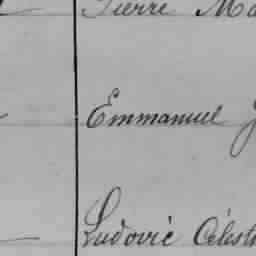 Pierre Ma
Emmanuel J
Ludovic Célest